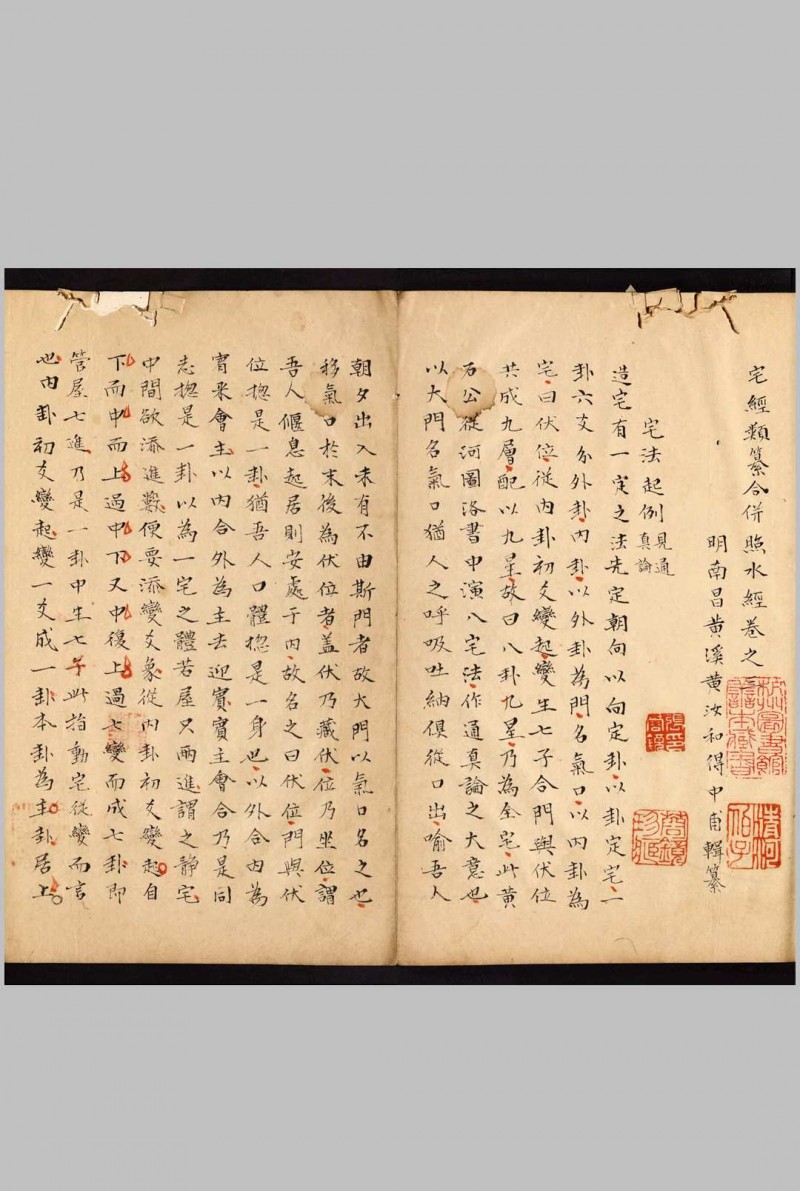 宅經類纂合併照水經卷之
明南昌黃溪黃汝和得中甫輯纂
宅法起例見通真論
造宅有一定之法先定朝向以向定卦以卦定宅一
卦六爻分外卦內卦以外卦為門名氣口以內卦為
宅曰伏位從內卦初爻變起變生七子合門與伏位
共成九層配以九星故曰八卦九星乃為全宅此黃
石公從河圖洛書中演八宅法作通真論之大意也
以大門名氣口猶人之呼吸吐納俱從口出喻吾人
朝夕出入未有不由斯門者故大門以氣口名之也
移氣口於末後為伏位者盖伏乃藏伏位乃坐位謂
吾人偃息起居則安處于內故名之曰伏位門與伏
位揔是一卦猶吾人口體揔是一身也以外合內為
賓來會主以內合外為主去迎賓賓主會合乃是同
志揔是一卦以為一宅之體若屋只兩進謂之靜宅
中間欲添進數便要添變爻象從內卦初爻變起自
下而中而上過中下又中復上過七變而成七卦即
管屋七進乃是一卦中生七子此指動宅從變而言
也內卦初爻變起變一爻成一卦本卦為主卦居上